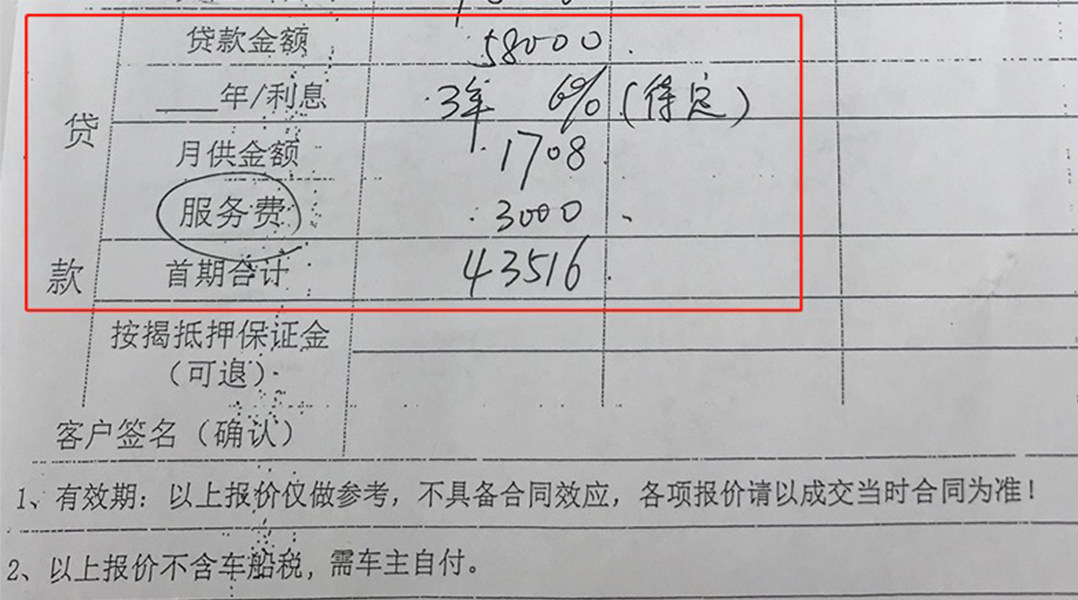 贷款金额 58000.
___年/利息 3年 6% (待定)
贷
月供金额 1708
服务费 3000
款
首期合计 43516
按揭抵押保证金
（可退）
客户签名（确认）
1、有效期：以上报价仅做参考，不具备合同效应，各项报价请以成交当时合同为准！
2、以上报价不含车船税，需车主自付。